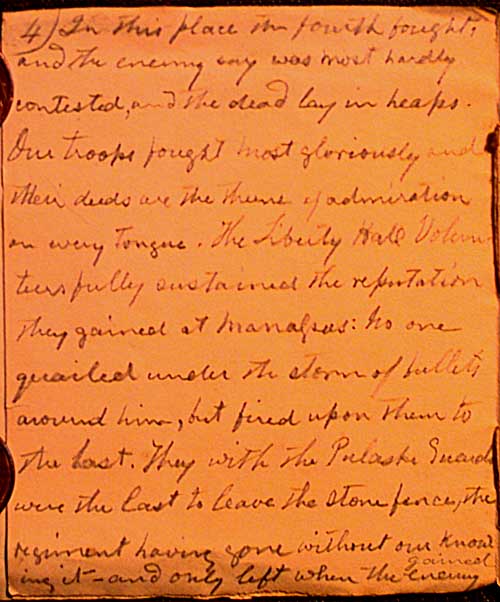 4) In this place the fourth fought,
and the enemy say was most hardly
contested, and the dead lay in heaps.
Our troops fought most gloriously and
their deeds are the theme of admiration
on every tongue. The Liberty Hall Volun-
teers fully sustained the reputation
they gained at Manassas: No one
quailed under the storm of bullets
around him, but fired upon them to
the last. They with the Pulaski Guards
were the last to leave the stone fence, the
regiment having gone without our know
gained
ing it - and only left when the enemy